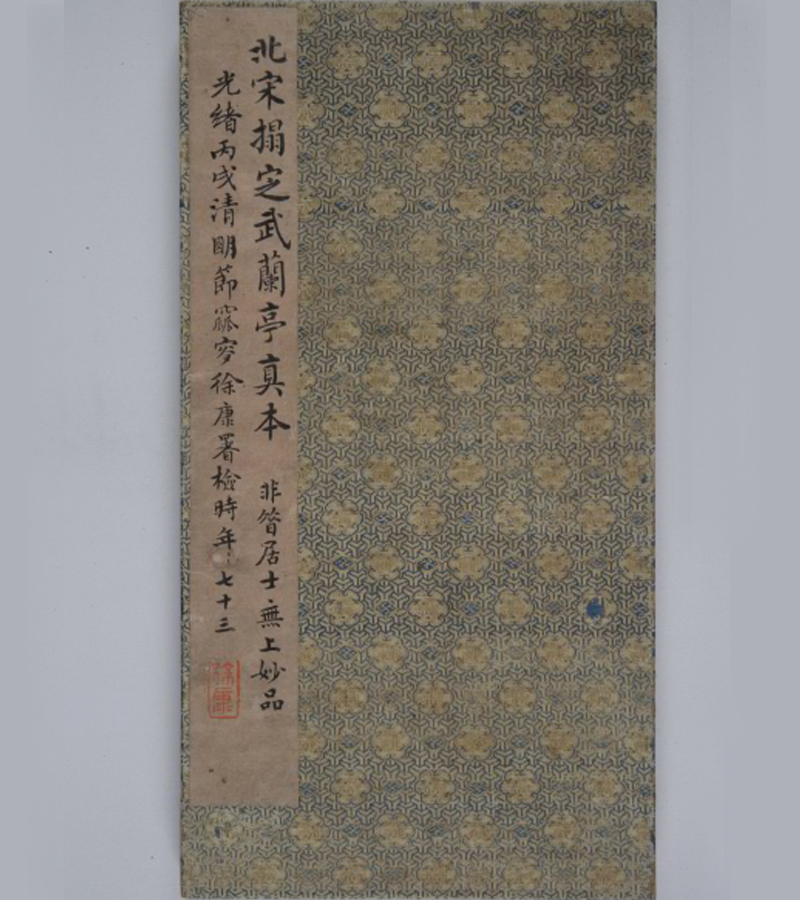 北宋搨定武蘭亭真本 非昔居士無上妙品
光緒丙戌清眀節窳叟徐康署檢時年七十三
徐康